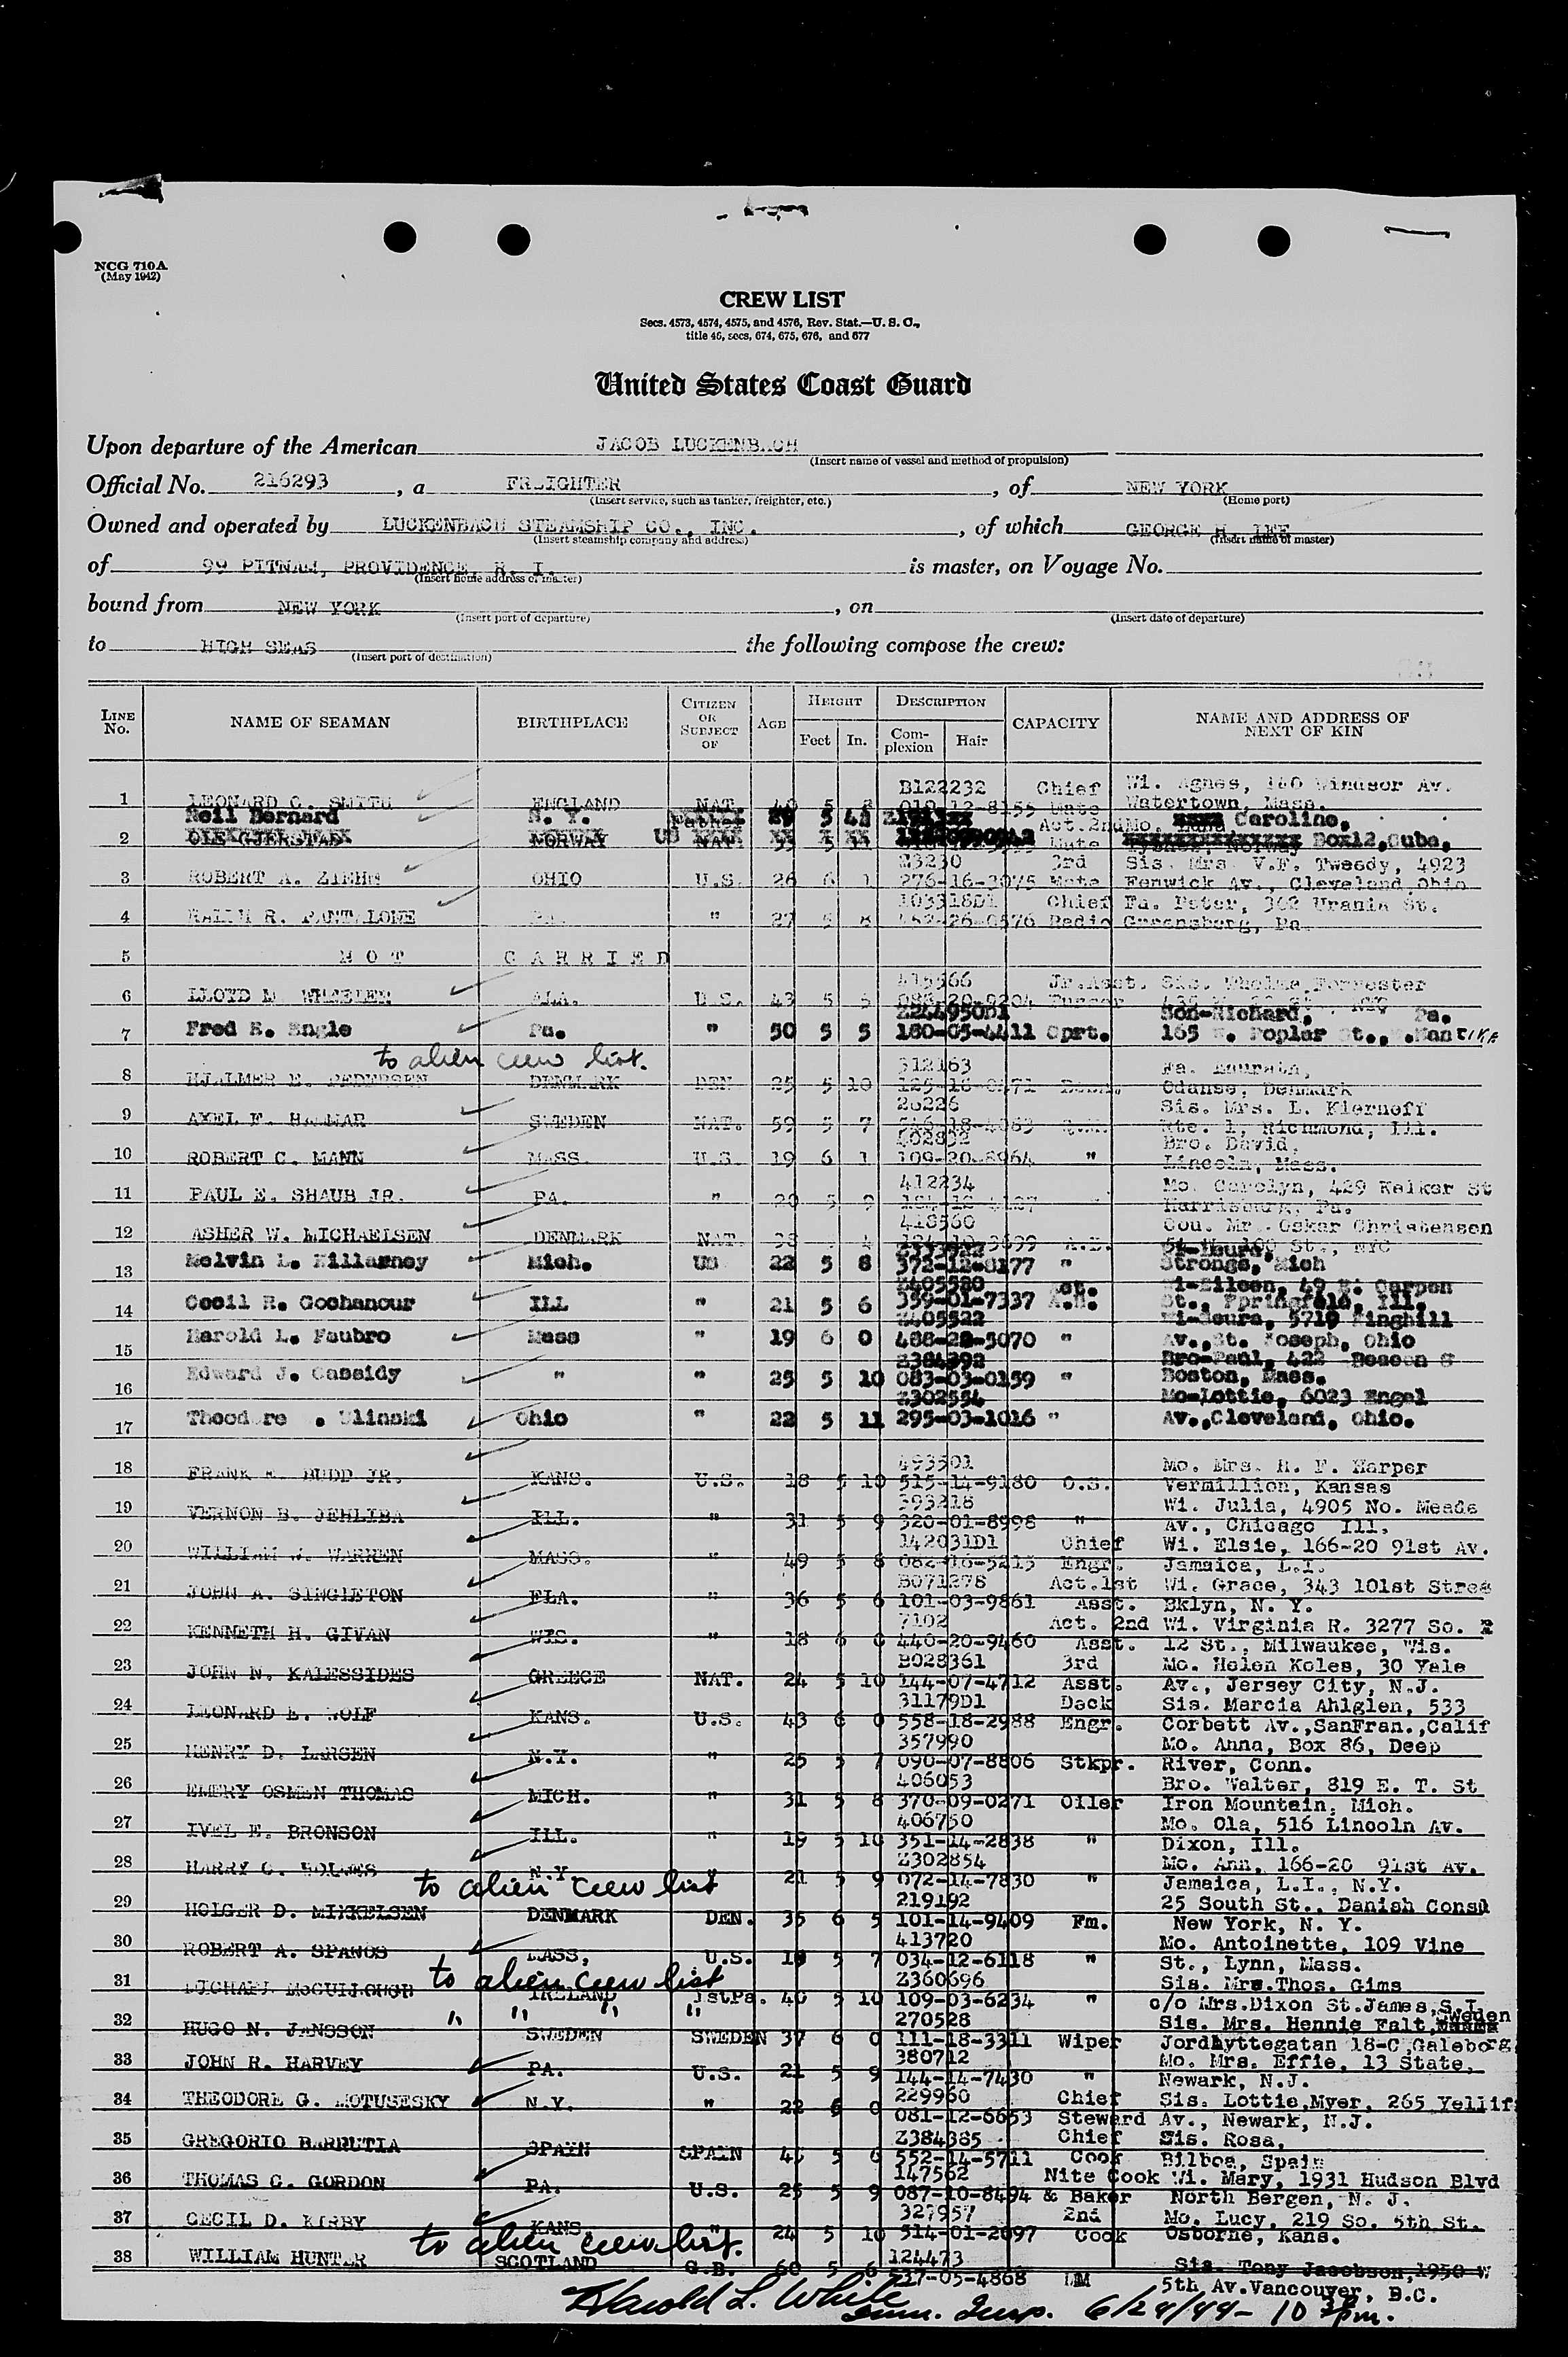 NCG 710A
(May 1942)
CREW LIST
Secs. 4573, 4574, 4575, and 4576, Rev. Stat.—U. S. C.,
title 46, secs, 674, 675, 676, and 677
United States Coast Guard
Upon departure of the American JACOB LUCKENBACH
(Insert name of vessel and method of propulsion)
Official No. 216293, a FREIGHTER, of NEW YORK
(Insert service, such as tanker, freighter, etc.) (Home port)
Owned and operated by LUCKENBACH STEAMSHIP CO., INC., of which GEORGE H. LEE
(Insert steamship company and address) (Insert name of master)
of 99 PITNAM, PROVIDENCE, R. I. is master, on Voyage No.
(Insert home address of master)
bound from NEW YORK, on
(Insert port of departure) (Insert date of departure)
to HIGH SEAS the following compose the crew:
(Insert port of destination)
LINE No. NAME OF SEAMAN BIRTHPLACE CITIZEN OR SUBJECT OF AGE HEIGHT Feet In. DESCRIPTION Complexion Hair CAPACITY NAME AND ADDRESS OF NEXT OF KIN
B122232 Chief Wi. Agnes, Windsor Av.
1 LEONARD C. SMITH ENGLAND NAT. 5 8 Mate Watertown, Mass.
Neil Bernard N. Y. 5 Act.2nd Mo. Caroline,
2 OLE GJERSTAD NORWAY US NAT. Mate Box12,Cuba,
Z3230 3rd Sis. Mrs. V.F. Tweedy, 4923
3 ROBERT A. ZIEHN OHIO U.S. 26 6 1 276-16-3075 Mate Fenwick Av., Cleveland Ohio
103318D1 Chief Fa. Peter, 362 Urania St.
4 RALPH R. PANTALONE PA. " 27 5 8 Radio Greensberg, Pa.
5 NOT CARRIED
Jr.Asst. Sis. Thelma Forrester
6 LLOYD M. WHEELER ALA. U.S. 43 5 5 Purser NYC
Z244950D1 Son-Richard, Pa.
7 Fred E. Engle Pa. " 50 5 5 180-05-4411 Cprt. 165 Poplar St.,
to alien crew list.
312163 Fa.
8 HJALMER E. PEDERSEN DENMARK DEN. 25 5 10 Odanse, Denmark
26226 Sis. Mrs. L. Klernoff
9 AXEL F. SWEDEN NAT. 59 5 7 Q.M. Rte. 1, Richmond, Ill.
402892 Bro. David,
10 ROBERT C. MANN MASS. U.S. 19 6 1 109-20-8964 " Lincoln, Mass.
412234 Mo. Carolyn, 429 Kelker St
11 PAUL E. SHAUB JR. PA. " 20 5 9 Harrisburg, Pa.
418560 Cou. Mr. Oskar Christensen
12 ASHER W. MICHAELSEN DENMARK NAT. 38 A.B. St., NYC
13 Melvin L. Killarney Mich. US 22 5 8 372-12-8177 " Strongs, Mich
Z405580 Wi-Eileen, 49
14 Cecil R. Gochanour ILL " 21 5 6 359-01-7337 A.B. St., Springfeld, Ill.
Z405522 5719 Kinghill
15 Harold L. Faubro Mass " 19 6 0 488-28-5070 " Av.,St. Joseph, Ohio
Z384392 Bro-Paul, 422 Beacon S
16 Edward J. Cassidy " " 25 5 10 083-03-0159 " Boston, Mass.
Z302554 Mo-Lottie, 6023 Engel
17 Theodore . Ulinski Ohio " 22 5 11 295-03-1016 " Av.,Cleveland, Ohio.
493501 Mo. Mrs. H. F. Harper
18 FRANK BUDD JR. KANS. U.S. 18 5 10 515-14-9180 O.S. Vermillion, Kansas
393218 Wi. Julia, 4905 No. Meade
19 VERNON B. JEHLIBA ILL. " 31 5 9 320-01-8998 " Av., Chicago Ill.
142031D1 Chief Wi. Elsie, 166-20 91st Av.
20 WILLIAM J. WARREN MASS. " 49 5 8 082-16-5215 Engr. Jamaica, L.I.
B071278 Act.1st Wi. Grace, 343 101st Stree
21 JOHN A. SINGLETON FLA. " 36 5 6 101-03-9861 Asst. Bklyn, N. Y.
7102 Act. 2nd Wi. Virginia R. 3277 So.
22 KENNETH H. GIVAN WIS. " 18 6 0 440-20-9460 Asst. 12 St., Milwaukee, Wis.
B028361 3rd Mo. Helen Koles, 30 Yale
23 JOHN N. KALESSIDES GREECE NAT. 24 5 10 144-07-4712 Asst. Av., Jersey City, N.J.
31179D1 Deck Sis. Marcia Ahlglen, 533
24 LEONARD E. WOLF KANS. U.S. 43 6 0 558-18-2988 Engr. Corbett Av.,SanFran.,Calif
357990 Mo. Anna, Box 86, Deep
25 HENRY D. LARSEN N.Y. " 25 5 7 090-07-8806 Stkpr. River, Conn.
406053 Bro. Walter, 819 E. T. St
26 EMERY OSMEN THOMAS MICH. " 31 5 8 370-09-0271 Oiler Iron Mountain, Mich.
406750 Mo. Ola, 516 Lincoln Av.
27 IVEL E. BRONSON ILL. " 19 5 10 351-14-2838 " Dixon, Ill.
Z302854 Mo. Ann, 166-20 91st Av.
28 HARRY G. HOLMES N.Y. " 21 5 9 072-14-7830 " Jamaica, L.I., N.Y.
to alien crew list
219192 25 South St., Danish Consl
29 HOLGER D. MIKKELSEN DENMARK DEN. 35 6 5 101-14-9409 Fm. New York, N. Y.
413720 Mo. Antoinette, 109 Vine
30 ROBERT A. SPANOS MASS, U.S. 18 5 7 034-12-6118 " St., Lynn, Mass.
to alien crew list
Z360696 Sis. Mrs.Thos. Gims
31 MICHAEL McCULLOUGH IRELAND 1stPa. 40 5 10 109-03-6234 " c/o Mrs.Dixon St.James,S.I.
" " " "
270528 Sis. Mrs. Hennie Falt, Sweden
32 HUGO N. JANSSON SWEDEN SWEDEN 37 6 0 111-18-3311 Wiper Jordhyttegatan 18-C,Galeborg
380712 Mo. Mrs. Effie, 13 State,
33 JOHN R. HARVEY PA. U.S. 21 5 9 144-14-7430 " Newark, N.J.
229960 Chief Sis. Lottie,Myer, 265 Yellif
34 THEODORE G. MOTUSESKY N.Y. " 22 6 0 081-12-6653 Steward Av., Newark, N.J.
Z384385 Chief Sis. Rosa,
35 GREGORIO BARRUTIA SPAIN SPAIN 46 5 6 552-14-5711 Cook Bilboa, Spain
147562 Nite Cook Wi. Mary, 1931 Hudson Blvd
36 THOMAS C. GORDON PA. U.S. 25 5 9 087-10-8494 & Baker North Bergen, N. J.
327957 2nd Mo. Lucy, 219 So. 5th St.
37 CECIL D. KIRBY KANS. " 24 5 10 514-01-2097 Cook Osborne, Kans.
to alien crew list.
124473 Sis. Tony Jacobson,1950 W
38 WILLIAM HUNTER SCOTLAND G.B. 60 5 6 537-05-4868 UM 5th Av.Vancouver, B.C.
Harold L. White
Imm. Insp. 6/24/44 - 10 30 pm.